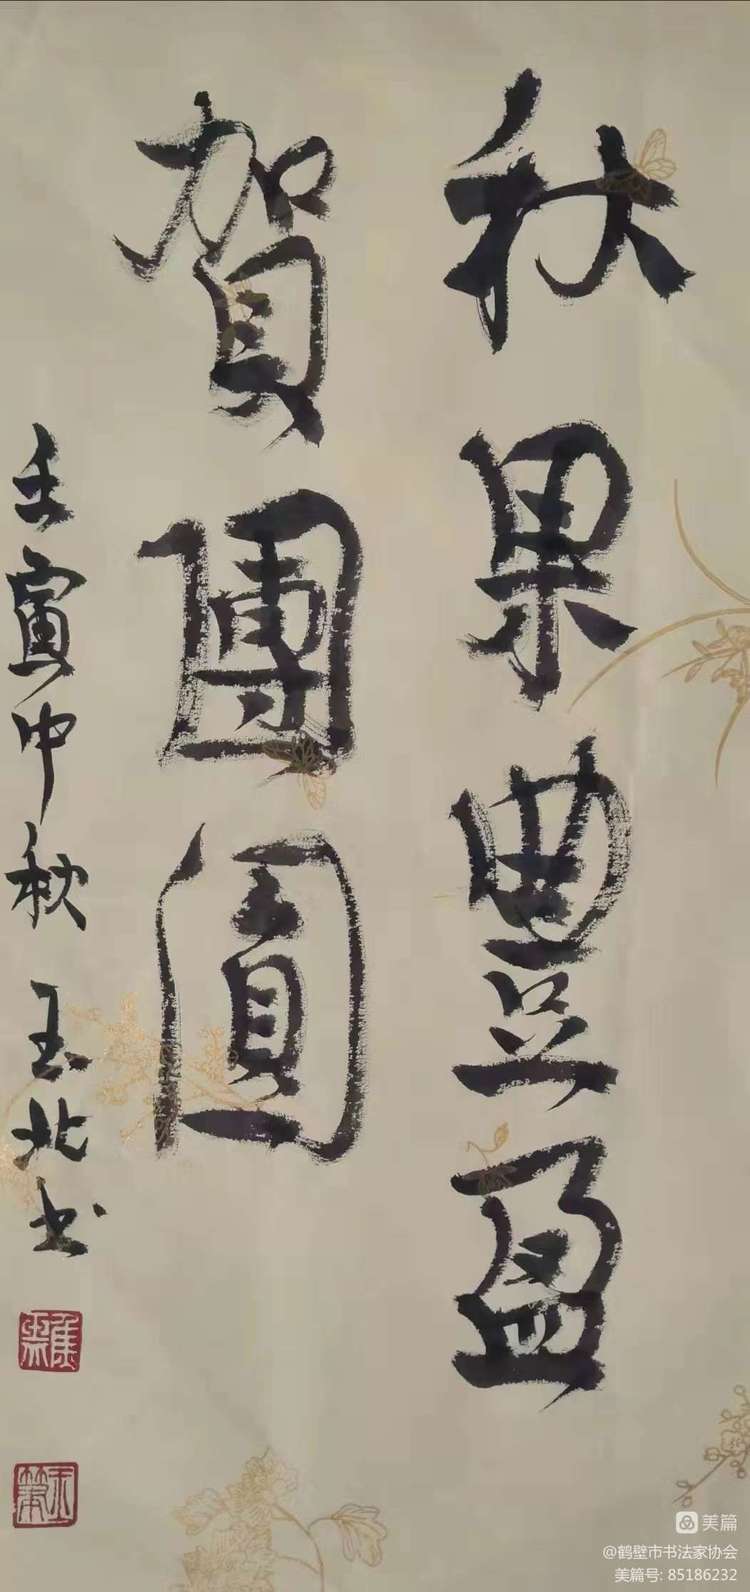 秋果豊盈
賀團圓
壬寅中秋 玉北书
美篇
@鹤壁市书法家协会
美篇号: 85186232